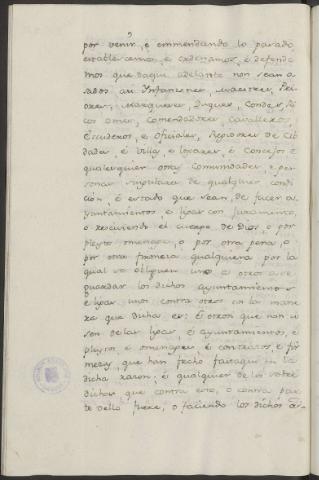 por venir, e emmendando lo pasado,
establecemos, e ordenamos, e defende
mos que daqui adelante non sean o
sados assi Infantes, Maestres, Pri
ores, Marqueses, Duques, Condes, Ri
cos omes, Comendadores, Cavalleros,
Escuderos, e oficiales, Regidores de Cib
dades, e villas, e Logares, e Concejos e
qualesquier otras Comunidades, e per
sonas singulares de qualquier condi
ción, e estado que sean, de facer a
yuntamientos, e ligas con juramento,
o resciviendo el cuerpo de Dios, o por
pleyto omenage, o por otra pena, o
por otra firmeza qualquiera por la
qual se obliguen unos a otros a se
guardar los dichos ayuntamientos
e ligas unos contra otros en la mane
ra que dicha es: E otrosi que non u
sen de las ligas, e ayuntamientos, e
pleytos e omenages, e contratos, e fir
mezas, que han fecho fastaqui en la
dicha razon, e qualquier de los sobre
dichos que contra esto, o contra par
te dello fuere, o faciendo los dichos a-